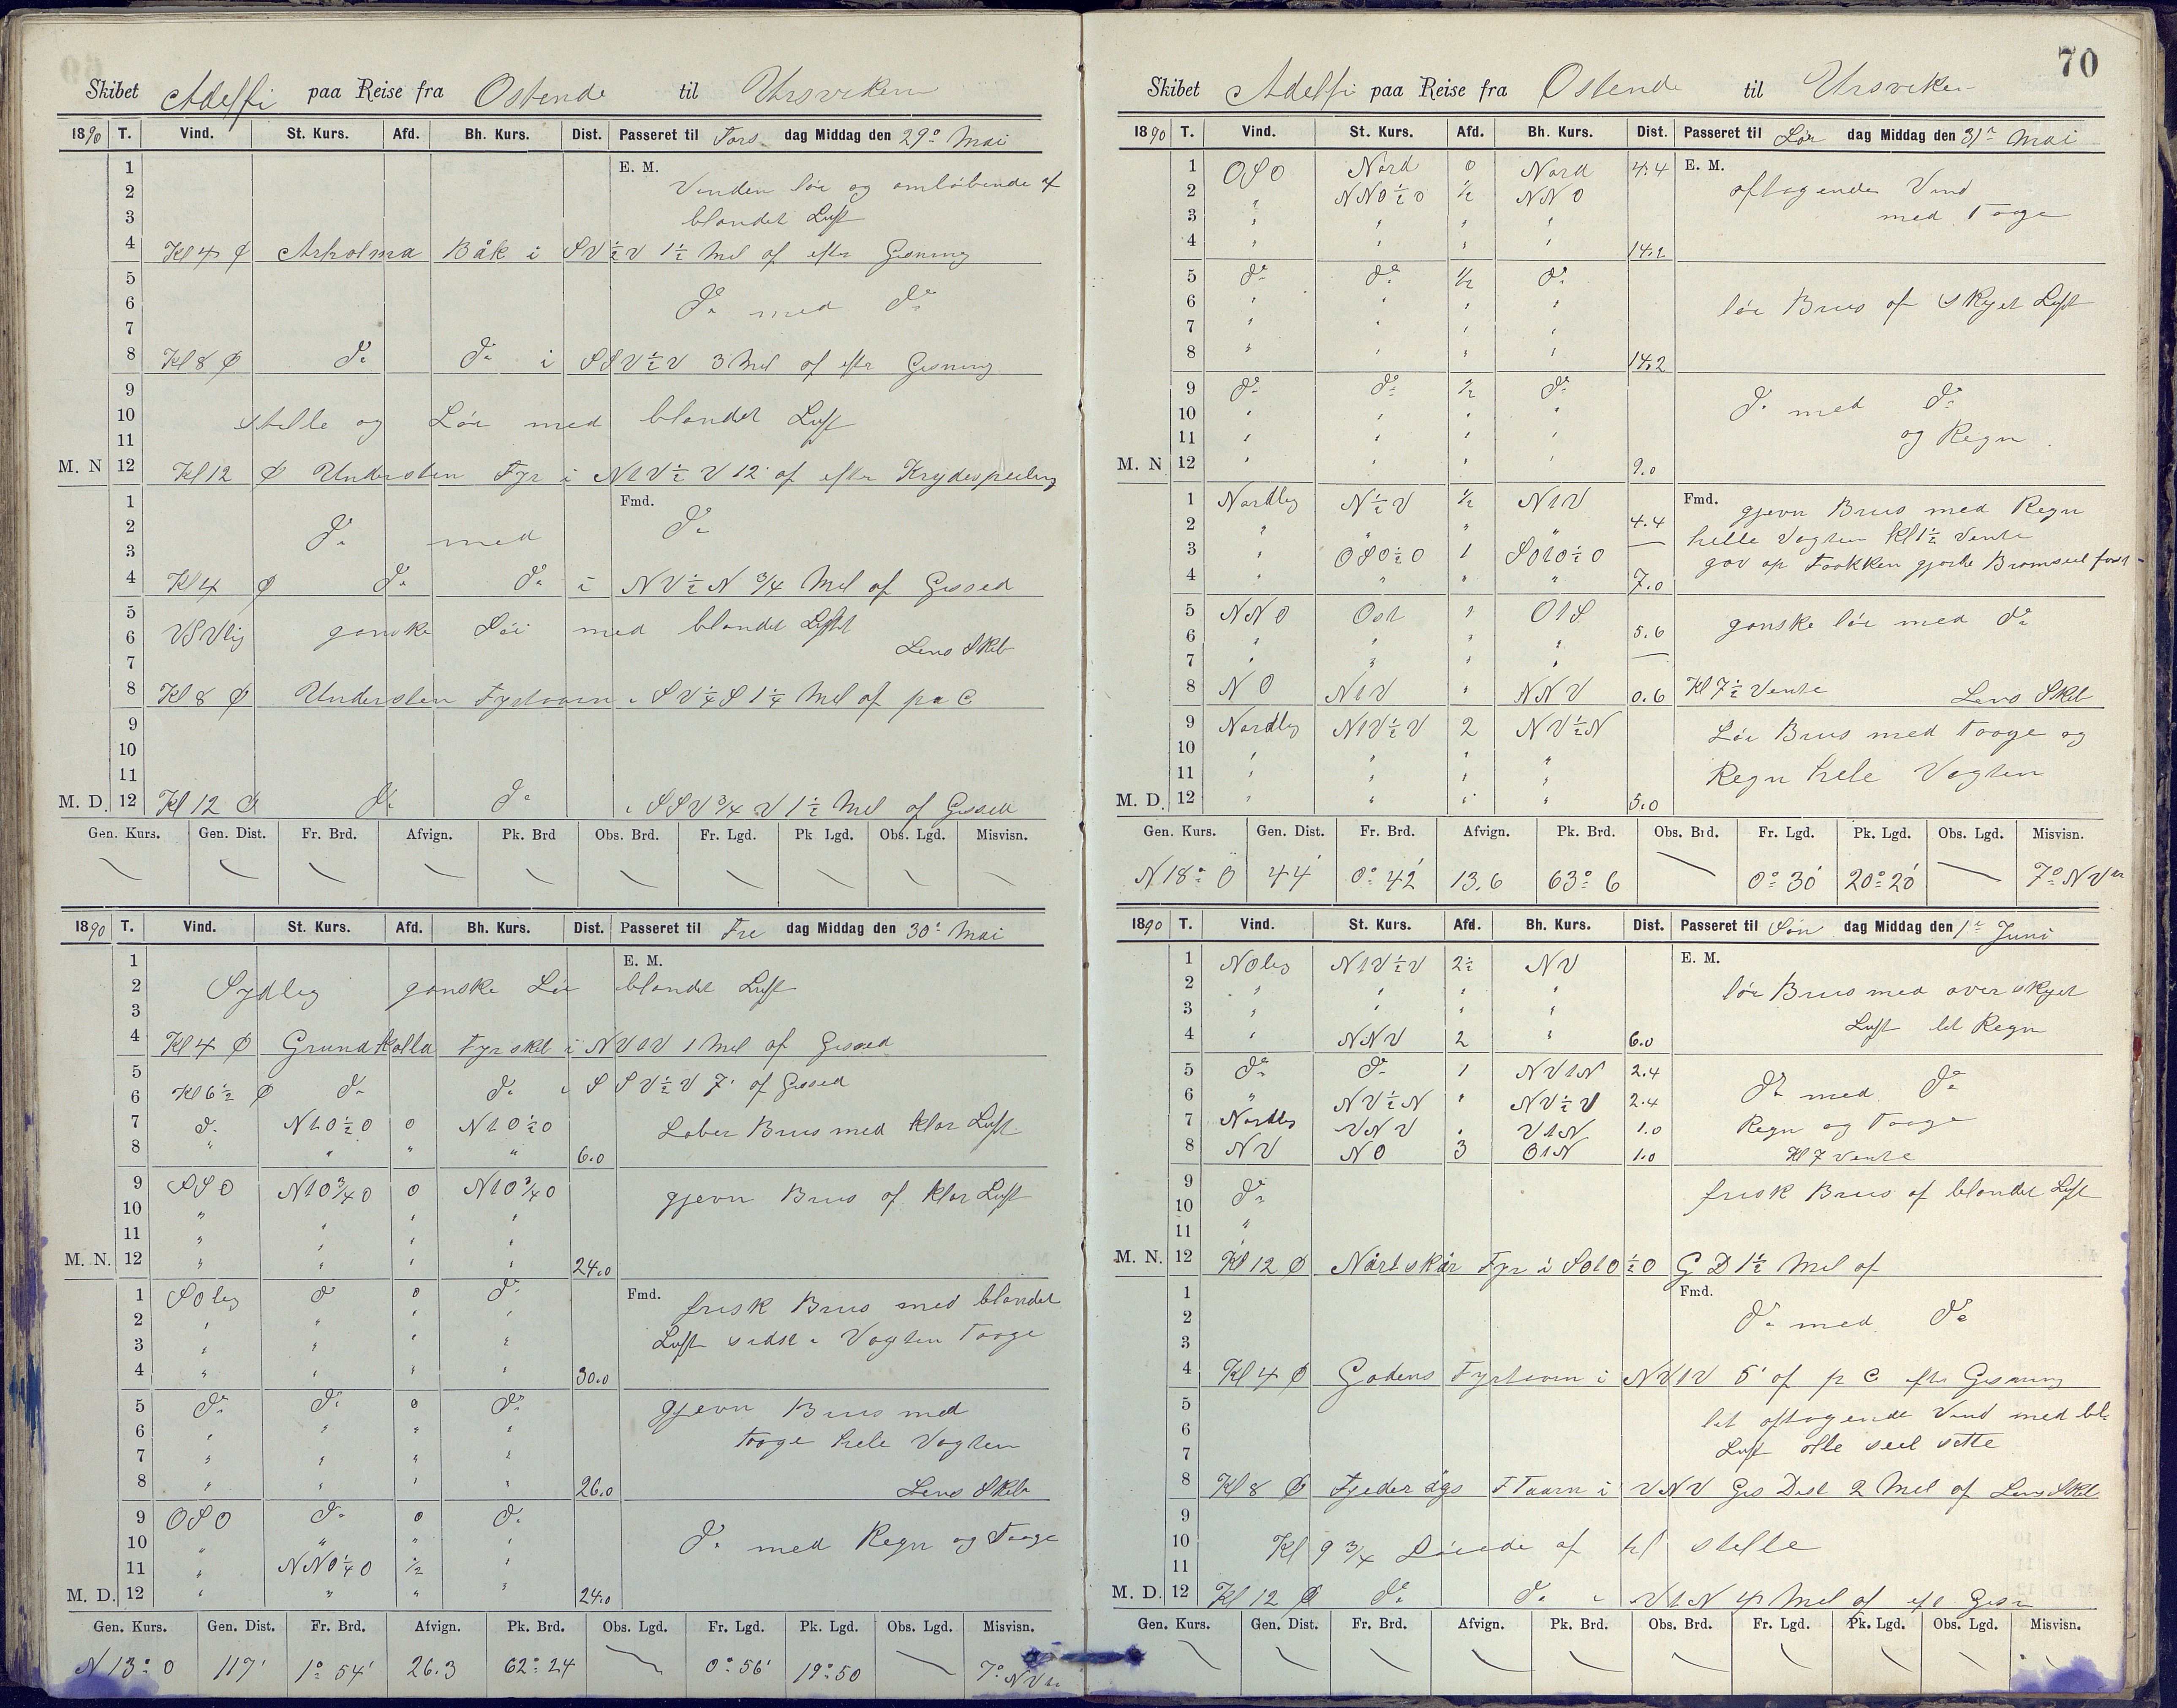 Skibet Adelfi paa Reise fra Ostende til Ursviken
1890 T. Vind. St. Kurs. Afd. Bh. Kurs. Dist. Passeret til Tors dag Middag den 29° Mai
1 E. M.
2 Vinden løi og omløbende af
3 blandet Luft
4 Kl 4 Arholma Båk i SV½V 1½ Mil af efter Gisning
5
6 Do med Do
7
8 Kl 8 Do Do i SSV½V 3 Mil af efter Gisning
9
10 Stille og Løi med blandet Luft
11
M. N 12 Kl 12 Understen Fyr i N1V½V 12' af efter Krydspeiling
1 Fmd.
2 Do med Do
3
4 Kl 4 Do Do i NV½N ¾ Mil af Gissed
5
6 VSVlig ganske Løi med blandet Luft
7 Lens Skib
8 Kl 8 Understen Fyrtaarn i SV¼S 1¼ Mil af pa C
9
10
11
M. D. 12 Kl 12 Do Do i SSV¾V 1½ Mil af Gissed
Gen. Kurs. Gen. Dist. Fr. Brd. Afvign. Pk. Brd Obs. Brd. Fr. Lgd. Pk Lgd. Obs. Lgd. Misvisn.
1890 T. Vind. St. Kurs. Afd. Bh. Kurs. Dist. Passeret til Fre dag Middag den 30° Mai
1 E. M.
2 Sydlig ganske Løi blandet Luft
3
4 Kl 4 Grundkalla Fyrskib i NV1V 1 Mil af Gissed
5
6 Kl 6½ Do Do i SSV½V 7' af Gissed
7 Do N1O½O 0 N1O½O Laber Bris med klar Luft
8 " " " " 6.0
9 SSO N1O¾O 0 N1O¾O gjevn Bris af klar Luft
10 " " " "
11 " " " "
M. N. 12 " " " " 24.0
1 SOlig Do 0 Do Fmd. frisk Bris med blandet
2 " " " "
3 " " " " Luft sidst i Vagten Taage
4 " " " " 30.0
5 Do Do 0 Do gjevn Bris med
6 " " " " Taage hele Vagten
7 " " " "
8 " " " " 26.0 Lens Skib
9 OSO Do 0 Do
10 " " " " Do med Regn og Taage
11 " NNO¼O ½ "
M. D. 12 " " " " 24.0
Gen. Kurs. Gen. Dist. Fr. Brd. Afvign. Pk. Brd. Obs. Lgd. Fr. Lgd. Pk. Lgd. Obs. Lgd. Misvisn.
N 13° O 117' 1° 54' 26.3 62° 24 0° 56' 19° 50 7° NV
70
Skibet Adelfi paa Reise fra Ostende til Ursviken
1890 T. Vind. St. Kurs. Afd. Bh. Kurs. Dist. Passeret til Lør dag Middag den 31 Mai
1 OSO Nord 0 Nord 4.4 E. M.
2 " NNO½O ½ NNO aftagende Vind
3 " " " " med Taage
4 " " " " 14.2
5 Do Do ½ Do
6 " " " " løi Bris af Skyet Luft
7 " " " "
8 " " " " 14.2
9 Do Do ½ Do
10 " " " " Do med Do
11 " " " " og Regn
M. N 12 " " " " 9.0
1 Nordlig N½V ½ N1V Fmd. gjevn Bris med Regn
2 " " " " 4.4 helle Vagten Kl 1½ Vente
3 " OSO½O 1 SO1O½O gav op Fokken gjorte Bramseil fast
4 " " " " 7.0
5 NNO Ost " O1S 5.6 ganske løi med Do
6 " " " "
7 " " " "
8 NO N1V " NNV 0.6 Kl 7½ Vente Lens Skib
9 Nordlig N1V½V 2 NV½N Løi Bris med Taage og
10 " " " "
11 " " " " Regn hele Vagten
M. D. 12 " " " " 5.0
Gen. Kurs. Gen. Dist. Fr. Brd. Afvign. Pk. Brd. Obs. Brd. Fr. Lgd. Pk. Lgd. Obs. Lgd. Misvisn.
N 18° O 44' 0° 42' 13.6 63° 6 0° 30' 20° 20' 7° NV
1890 T. Vind. St. Kurs. Afd. Bh. Kurs. Dist. Passeret til Søn dag Middag den 1 Juni
1 NOlig N1V½V 2½ NV E. M.
2 " " " " løi Bris med over skyet
3 " " " "
4 " NNV 2 " 6.0 Luft let Regn
5 Do Do 1 NV1N 2.4
6 " NV½N " NV½V 2.4 Do med Do
7 Nordlig VNV " V1N 1.0 Regn og Taage
8 NV NO 3 O1N 1.0 Kl 7 vente
9 Do frisk Bris af blandet Luft
10
11 "
M. N. 12 Kl 12 Nårtskår Fyr i SO1O½O G D 1½ Mil af
1 Fmd.
2 Do med Do
3
4 Kl 4 Gadens Fyrtaarn i NV1V 5' af p C efter Gisning
5
6 let aftagende Vind med bl.
7 Luft alle seil sette
8 Kl 8 Fjederägs F Taarn i VNV Gis Dist 2 Mil af Lens Skib
9
10 Kl 9¾ Løiede af til stille
11
M. D. 12 Kl 12 Do Do i V1N 4 Mil af
Gen. Kurs. Gen. Dist. Fr. Brd. Afvign. Pk. Brd. Obs. Brd. Fr. Lgd. Pk. Lgd. Obs. Lgd. Misvisn.